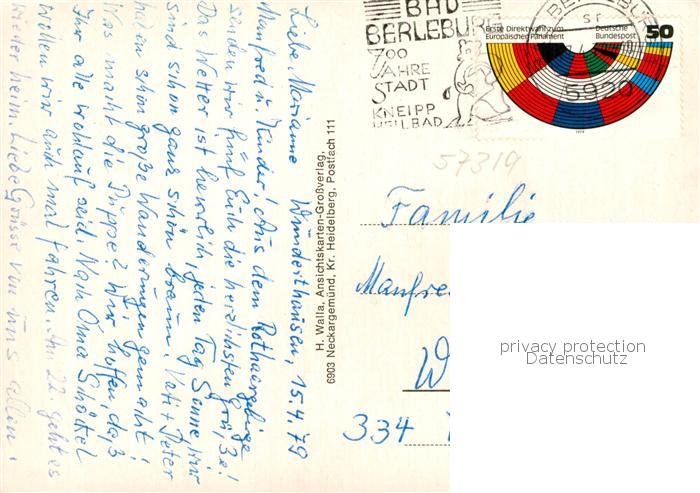 BAD
BERLEBURG
700
JAHRE
STADT
KNEIPP
HEILBAD
BERLEBUR
sr
5920
Erste Direktwahl zum
Europäischen Parlament
Deutsche
Bundespost
50
1979
57319
Wunderthausen, 15.4.79
Liebe Marianne
Manfred u. Kinder! Aus dem Rothaargebirge
senden wir fünf Euch die herzlichsten Grüße!
Das Wetter ist herrlich, jeden Tag Sonne, wir
sind schon ganz schön braun. Vati + Peter
haben schon große Wanderungen gemacht!
Was macht die Puppe? Wir hoffen, daß
Ihr alle wohlauf seid. Nach Oma Schöckel
wollen wir auch mal fahren. Am 22. geht es
wieder heim. Liebe Grüsse von uns allen!
H. Walla, Ansichtskarten-Großverlag,
6903 Neckargemünd, Kr. Heidelberg, Postfach 111
Familie
Manfre
W
334
privacy protection
Datenschutz